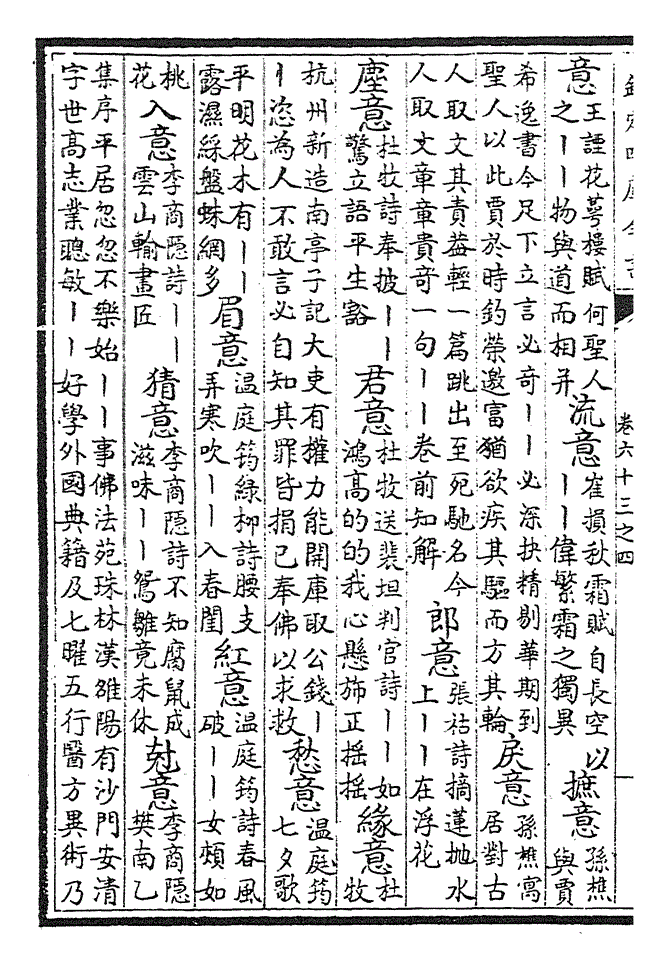 欽定四庫全書 卷六十三之四
意 王諲花萼樓賦何聖人之||物與道而相并 流意 崔損秋霜賦自長空以||偉繁霜之獨異 摭意 孫樵與賈
希逸書今足下立言必奇||必深抉精剔華期到聖人以此賈於時釣榮邀富猶欲疾其驅而方其輪 戾意 孫樵寓居對古
人取文其責蓋輕一篇跳出至死馳名今人取文章章貴奇一句||卷前知解 郎意 張祜詩摘蓮抛水上||在浮花
塵意 杜牧詩奉披||驚立語平生豁 君意 杜牧送裴坦判官詩||如鴻高的的我心懸斾正摇摇 緣意 杜牧
杭州新造南亭子記大吏有權力能開庫取公錢||恣為人不敢言必自知其罪皆捐己奉佛以求救 愁意 温庭筠七夕歌
平明花木有||露濕綵盤蛛網多 眉意 温庭筠緑柳詩腰支弄寒吹||入春閨 紅意 温庭筠詩春風破||女頰如
桃花 入意 李商隠詩||雲山輸畫匠 猜意 李商隠詩不知腐鼠成滋味||鴛雛竟未休 尅意 李商隠樊南乙
集序平居忽忽不樂始||事佛法苑珠林漢雒陽有沙門安清字世髙志業聰敏||好學外國典籍及七曜五行醫方異術乃